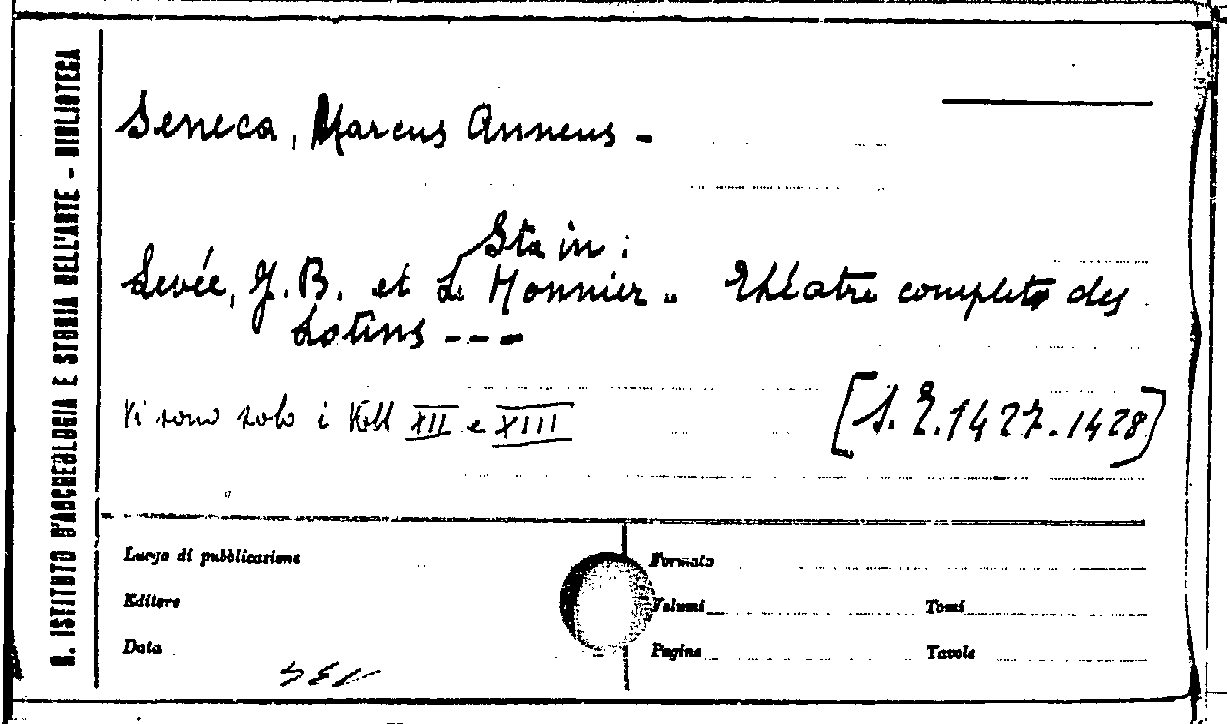 R. ISTITUTO D'ARCHEOLOGIA E STORIA DELL'ARTE - BIBLIOTECA
Seneca, Marcus Anneus -
Sta in:
Levée, J. B. et Le Monnier. Théatre complet des
Latins ---
Vi sono solo i Voll XII e XIII
[S. E. 1427-1428]
Luogo di pubblicazione
Formato
Editore
Volumi
Tomi
Data
Pagine
Tavole